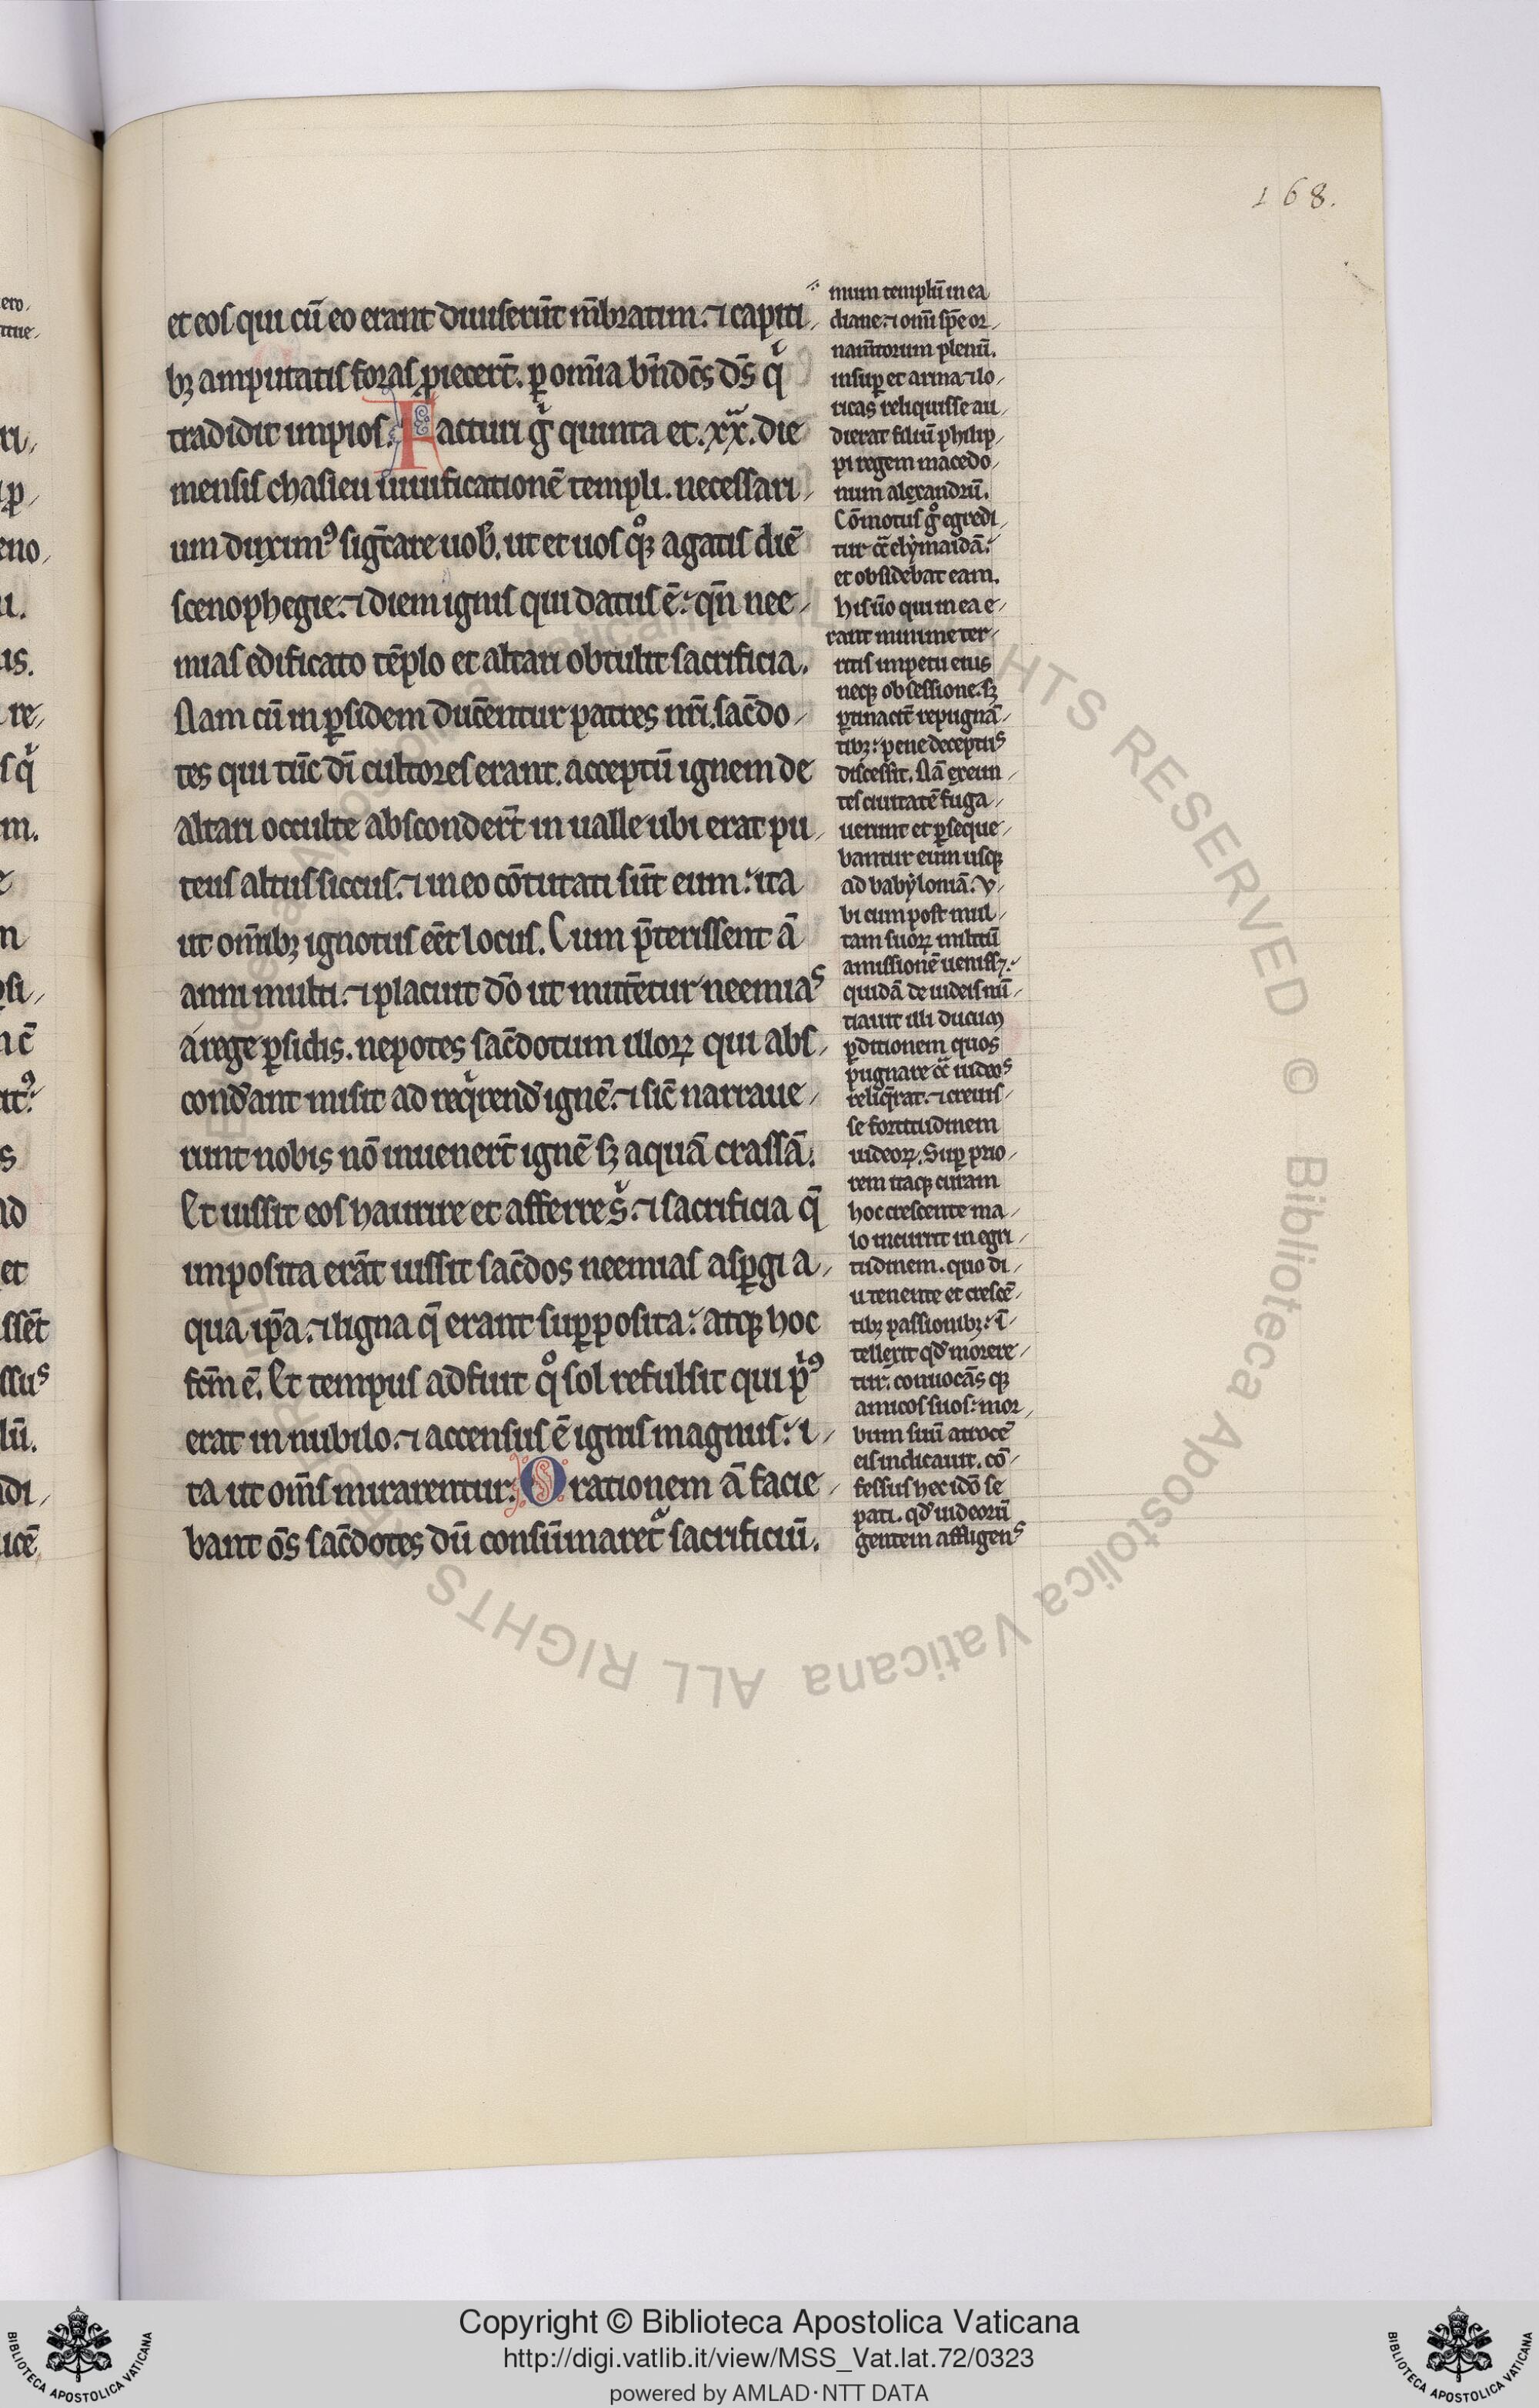 168.
et eos qui cū eo erant diuiserūt mᷠbratim.⁊ capiti⸝
bꝫ amputatis foras ꝓiecert̄. ꝑ omīa bn̄dcs̄ ds̄ qͥ
tradidit impios. Facturi gͦ quinta et .xx. die
mensis chasleu puuificationē templi. necessari⸝
um duximꝰ sigᷓtare uob̄. ut et uos qͦꝫ agatis diē
scenophegie.⁊ diem ignis qui datus ē.ꝛ qn̄ nee⸝
mias edificato tēplo et altari obtulit sacrificia.
Nam cū in ꝑsidem duc̄entur patres nr̄i. sac̄do⸝
tes qui tūc dī cultores erant. acceptū ignem de
altari occulte absconderт̄ in ualle ubi erat pu⸝
teus altus siccus.⁊ in eo cōtutati sūt eum.ꝛ ita
ut om̄ibꝫ ignotus eēt locus. Cum p̄terissent ā
anni multi.⁊ placuit dō ut mitt̄etur neemias
a rege ꝑsidis. nepotes sac̄dotum illorꝝ qui abs⸝
cond̄ant misit ad reqͥrend̄ ignē.⁊ sic̄ narraue⸝
runt nobis nō inuenert̄ ignē sꝫ aquā crassā.
Et iussit eos haurire et afferre sͥ.⁊ sacrificia q̄
imposita erāt iussit sac̄dos neemias aspꝑgi a⸝
qua ip̄a.⁊ ligna q̄ erant suꝑposita.ꝛ atqꝫ hoc
fcm̄ ē. Et tempus adfuit qͦ sol refulsit qui pͥꝰ
erat in nubilo.⁊ accensus ē ignis magnus.ꝛ i⸝
ta ut om̄s mirarentur. Orationem ā facie⸝
bant ōs sac̄dotes dū consūmaretᷣ sacrificiū.
mum templū in ea
diane.⁊ omī spē or⸝
nam̄torum plenū.
insuꝑ et arma ⁊ lo⸝
ricas reliquisse au⸝
dierat filiū philip⸝
pi regem macedo⸝
num alexandrū.
Cōmotus gͦ egredi⸝
tur cͣ elymaidā.ꝛ
et obsidebat eam.
His ūo qui in ea e⸝
rant minime ter⸝
ritis impetu eius
neqꝫ obsessione. sꝫ
ꝑtinacit̄ repugnā⸝
tibꝫ.ꝛ pene deceptus
discessit. Nā exeun⸝
tes ciuitatē fuga⸝
uerunt et ꝑseque⸝
bantur eum usqꝫ
ad babyloniā. V⸝
bi cum post mul⸝
tam suorꝝ militū
amissionē uenissꝫ.ꝛ
quidā de iudeis nū⸝
tiauit illi ducum
ꝑditionem quos
ꝓpugnare cͣ iudeos
reliqͦrat.⁊ creuis⸝
se fortitudinem
iudeorꝝ. Suꝑ prio⸝
rem itaqꝫ curam
hoc crescente ma⸝
lo incurrit in egri⸝
tudinem. quo di⸝
u tenente et crescē⸝
tibꝫ passionibꝫ.ꝛ ī⸝
tellexit qd̄ morere⸝
tur. conuocās qꝫ
amicos suos.ꝛ mor⸝
bum suū atrocē
eis indicauit. cō⸝
fessus hec idō se
pati. qd̄ iudeorū
gentem affligens
Copyright © Biblioteca Apostolica Vaticana
http://digi.vatlib.it/view/MSS_Vat.lat.72/0323
powered by AMLAD·NTT DATA